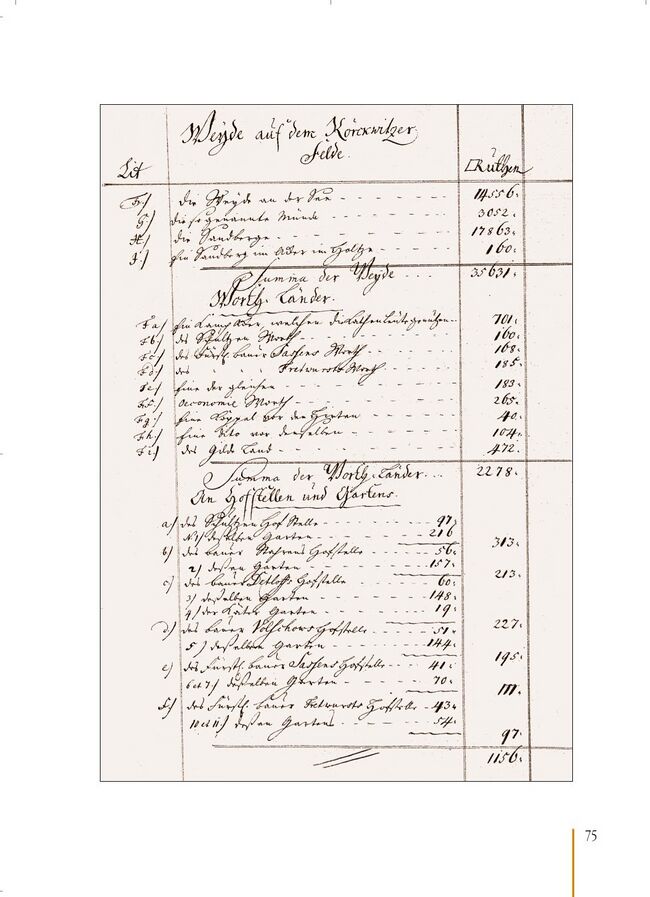 Weÿde auf dem Körckwitzer
Felde.
Lit □Ruthen
F.) die Weÿde an der See - - - 14556.
G.) die so genannte Münde - - - 3052.
H.) die Sandberge - - - 17863.
J.) Ein Sandberg im Acker im Holtze - - - 160.
Summa der Weÿde - - - 35631.
Worth Länder.
Fa) Ein Kamp Acker, welchen die Kathenleute gebrauchen - - 701.
Fb) des Schultzen Worth - - - 160.
Fc) des Fürstl. bauer Sassens Worth - - 168.
Fd) des " " Fretwursts Worth - - 185.
Fe) Eine der gleichen - - - 183.
Ff) Oeconomie Worth - - - 265.
Fg) Eine Koppel vor den Hirten - - - 40.
Fh) Eine dito vor denselben - - - 104.
Fi) des Gilde Land - - - 472.
Summa der Worth Länder - - - 2278.
An Hofstellen und Gartens.
a) des Schultzen Hof Stelle - - - 97.
desselben Garten - - - 216
313.
b) des bauer Hofstelle - - - 56.
2) dessen Garten - - - 157.
213.
c) des bauer Detloffs Hofstelle - - - 60.
3) desselben Garten - - - 148.
4) der Käter Garten - - - 19.
227.
d) des bauer Volschows Hofstelle - - - 51.
5) desselben Garten - - - 144.
195.
e) des Fürstl. bauer Sassens Hofstelle - - - 41.
6 et 7) desselben Garten - - - 70.
111.
f) des Fürstl. bauer Fretwursts Hofstelle - - 43.
10 et 11) dessen Gartens - - - 54.
97.
1156.
75